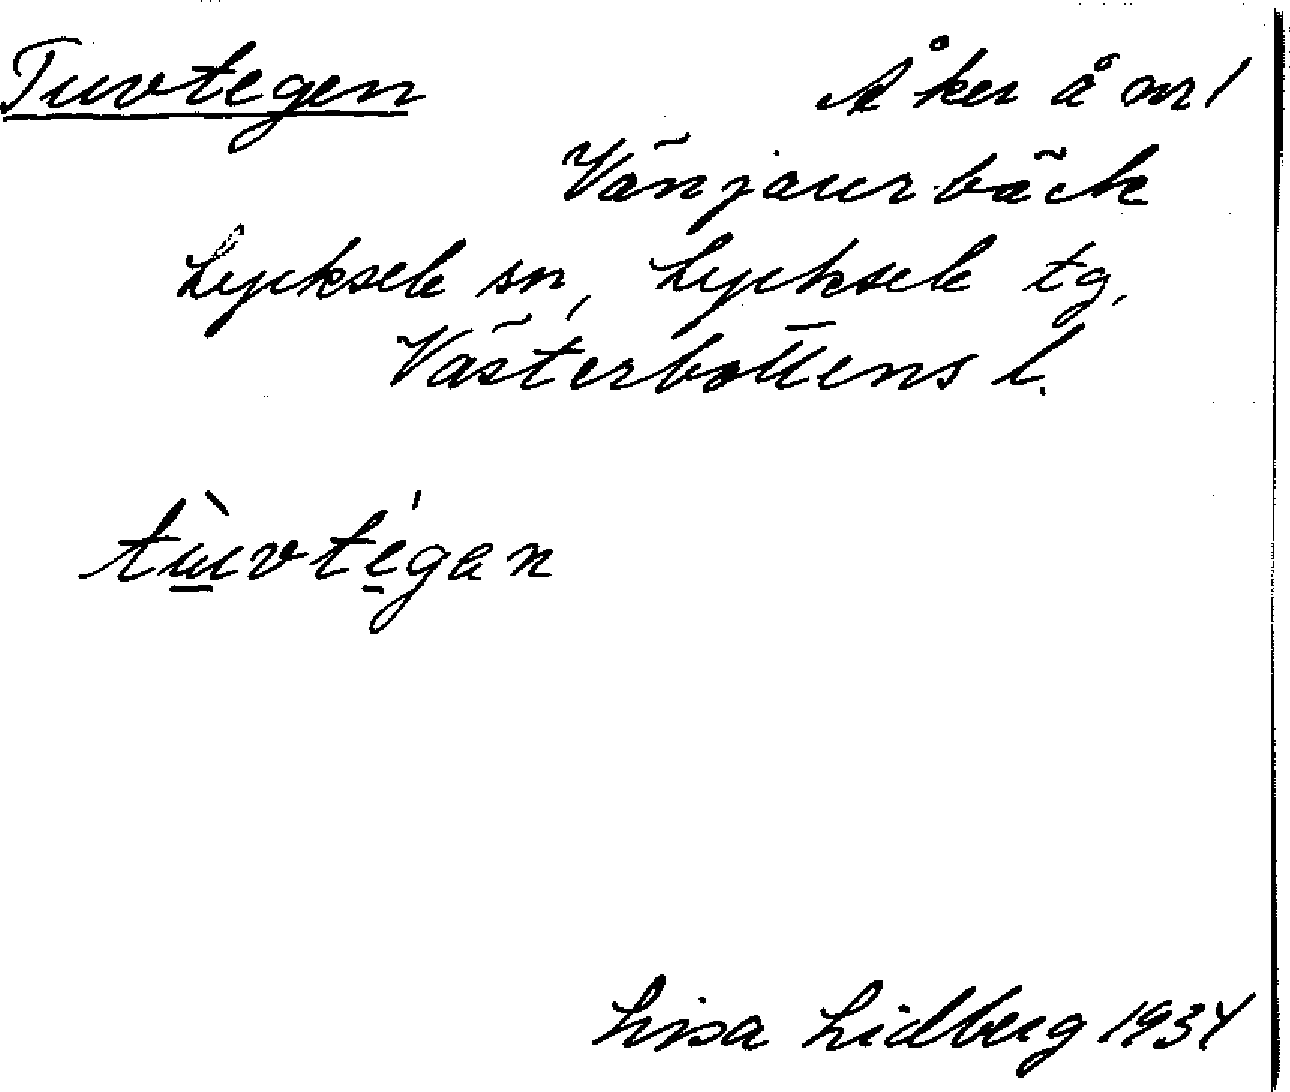 Tuvtegen Åker å nr 1
Vänjaurbäck
Lycksele sn, Lycksele tg,
Västerbottens l.
tùvtégan
Lisa Lidberg 1934